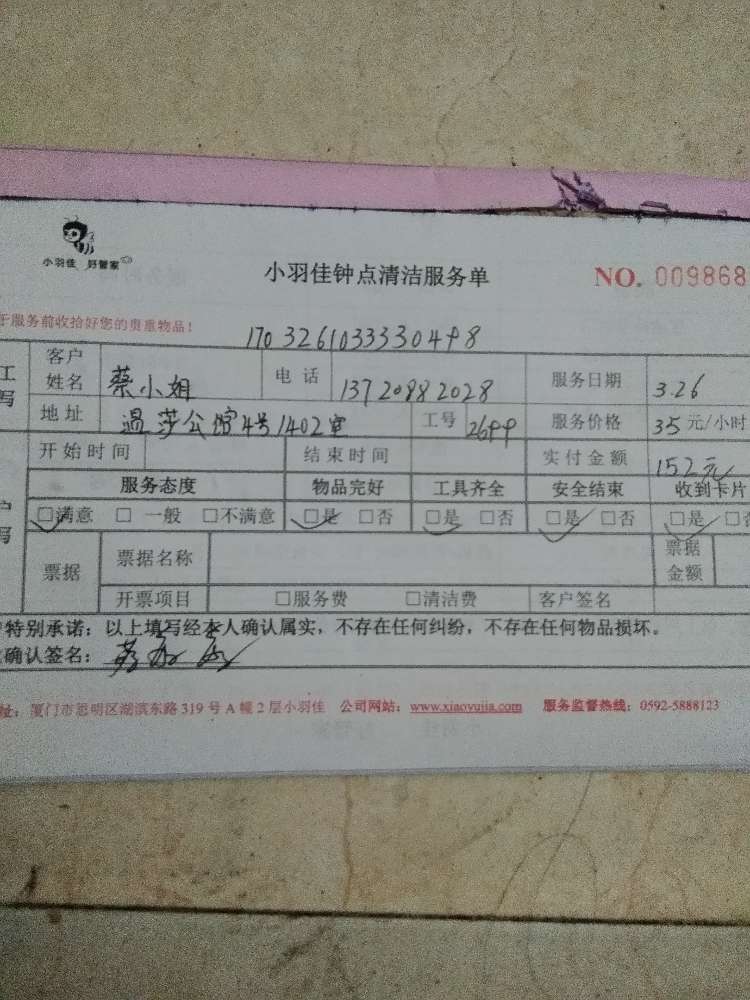 小羽佳 好管家
小羽佳钟点清洁服务单 NO. 009868
于服务前收拾好您的贵重物品！
1703261033330498
工 客户姓名 蔡小姐 电话 13720882028 服务日期 3.26
写 地址 温莎公馆4号1402室 工号 2699 服务价格 35元/小时
开始时间 结束时间 实付金额 152元
服务态度 物品完好 工具齐全 安全结束 收到卡片
户 □满意 □一般 □不满意 □是 □否 □是 □否 □是 □否 □是 □否
写 票据 票据名称 票据金额
开票项目 □服务费 □清洁费 客户签名
特别承诺：以上填写经本人确认属实，不存在任何纠纷，不存在任何物品损坏。
确认签名：
址：厦门市思明区湖滨东路319号A幢2层小羽佳 公司网站：www.xiaoyujia.com 服务监督热线：0592-5888123